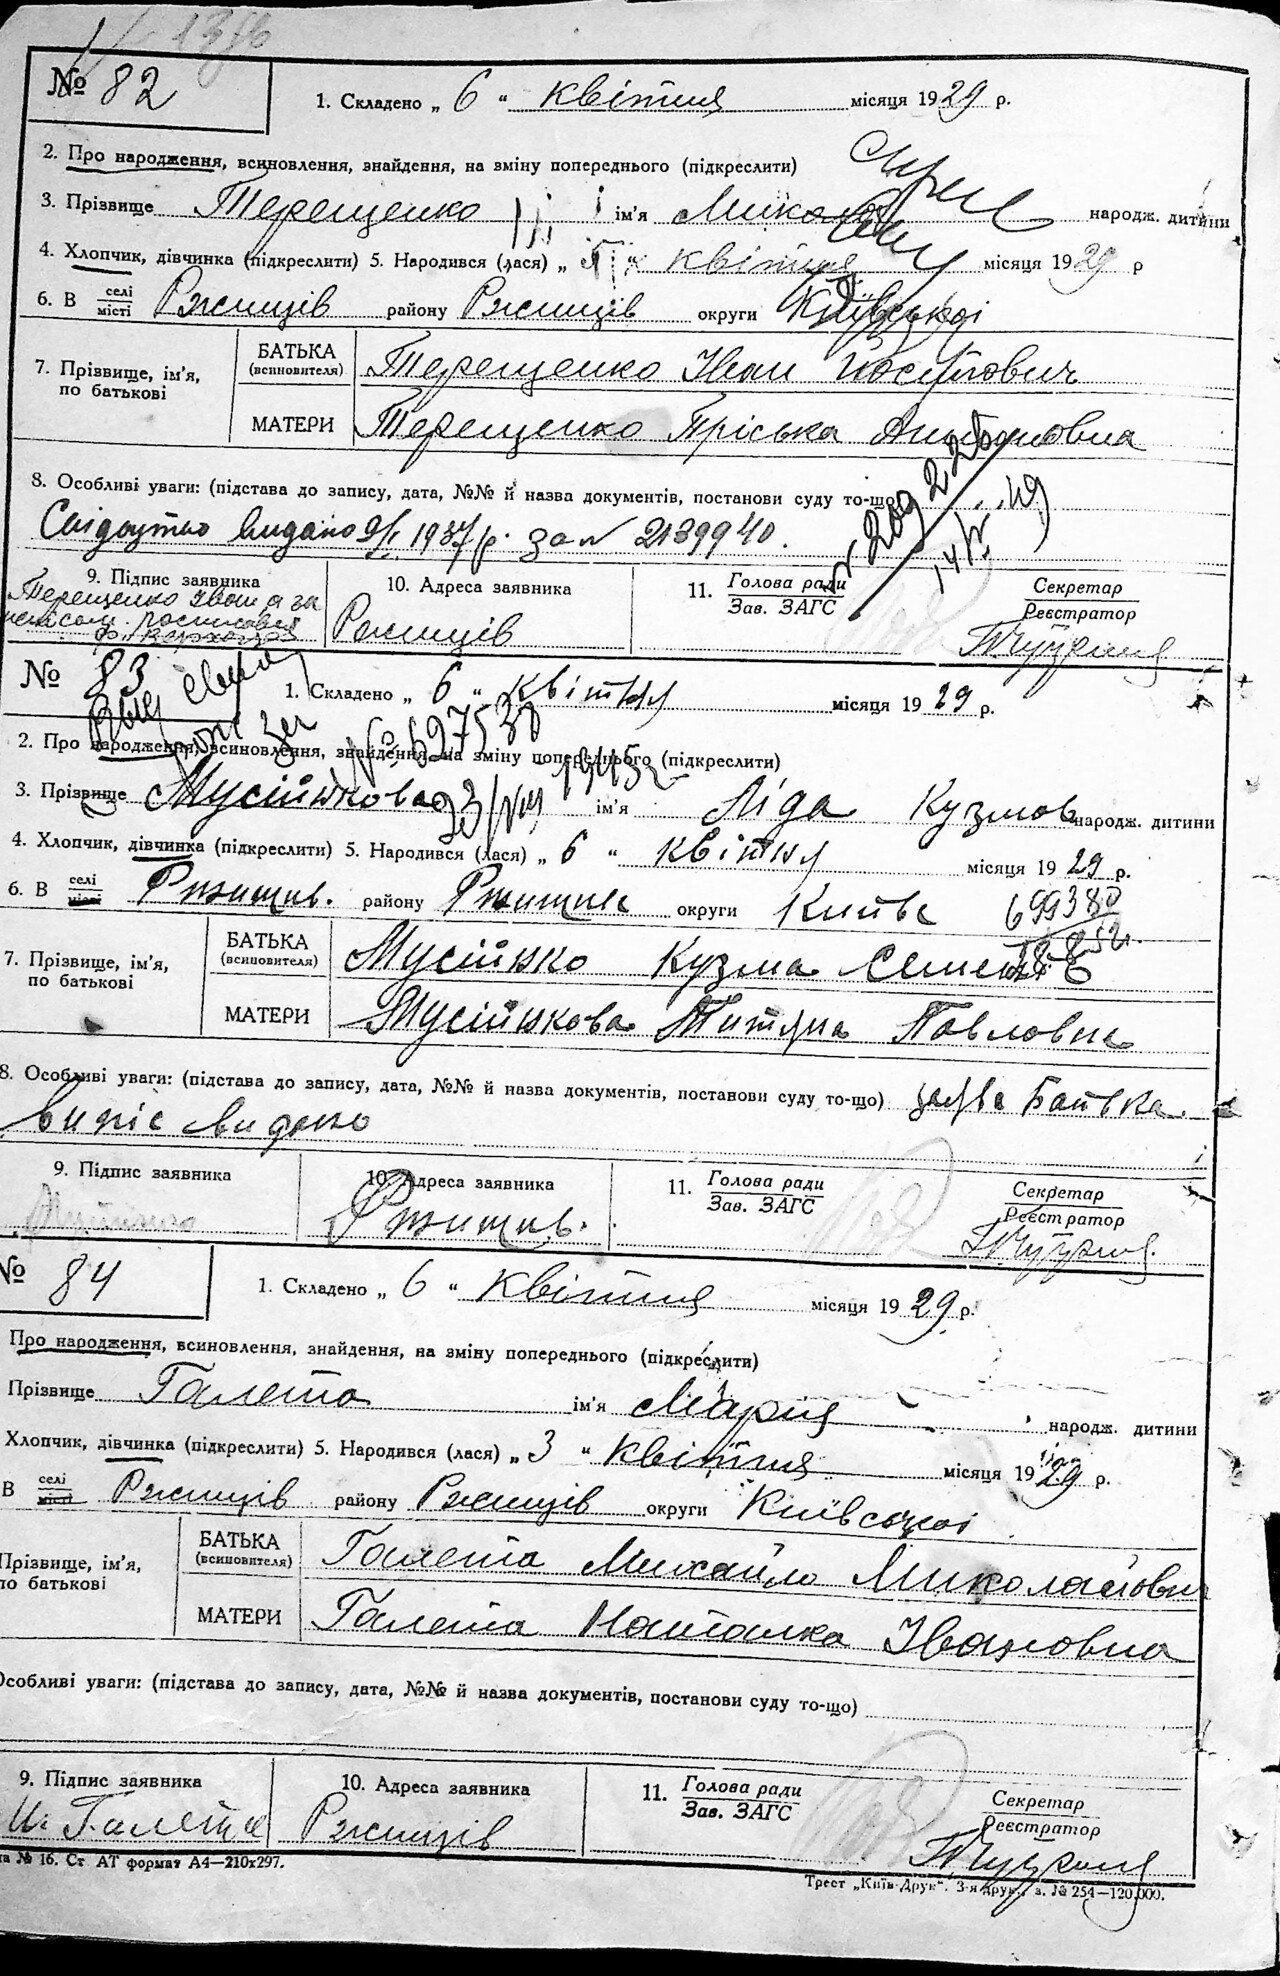 № 82
1. Складено „ 6 “ квітня місяця 1929 р.
2. Про народження, всиновлення, знайдення, на зміну попереднього (підкреслити)
3. Прізвище Терещенко ім'я Микола народж. дитини
4. Хлопчик, дівчинка (підкреслити) 5. Народився (лася) „ “ квітня місяця 1929 р
6. В селі місті Ржищів району Ржищів округи Київської
7. Прізвище, ім'я, по батькові
БАТЬКА (всиновителя) Терещенко Іван Йосипович
МАТЕРИ Терещенко Пріська Антоновна
8. Особливі уваги: (підстава до запису, дата, №№ й назва документів, постанови суду то-що)
Свідоцтво видано 1937 р. за № 2139940.
9. Підпис заявника
Терещенко Іван а за
10. Адреса заявника
Ржищів
11. Голова ради
Зав. ЗАГС
Секретар
Реєстратор
№ 83
1. Складено „ 6 “ квітня місяця 1929 р.
№ 627538
2. Про народження, всиновлення, знайдення, на зміну попереднього (підкреслити)
3. Прізвище Мусійнкова ім'я Ліда Кузмов народж. дитини
4. Хлопчик, дівчинка (підкреслити) 5. Народився (лася) „ 6 “ квітня місяця 1929 р.
6. В селі місті Ржищив. району Ржищив округи Київс
699380
7. Прізвище, ім'я, по батькові
БАТЬКА (всиновителя) Мусійнко Кузма Семен
МАТЕРИ Мусійнкова Титяна Павловна
8. Особливі уваги: (підстава до запису, дата, №№ й назва документів, постанови суду то-що) заява Батька.
Випіс видано
9. Підпис заявника
10. Адреса заявника
Ржищив.
11. Голова ради
Зав. ЗАГС
Секретар
Реєстратор
№ 84
1. Складено „ 6 “ квітня місяця 1929 р.
Про народження, всиновлення, знайдення, на зміну попереднього (підкреслити)
Прізвище Галета ім'я Мария народж. дитини
Хлопчик, дівчинка (підкреслити) 5. Народився (лася) „ 3 “ квітня місяця 1929 р.
В селі місті Ржищів району Ржищів округи Київської
Прізвище, ім'я, по батькові
БАТЬКА (всиновителя) Галета Михайло Миколайович
МАТЕРИ Галета Наталка Івановна
Особливі уваги: (підстава до запису, дата, №№ й назва документів, постанови суду то-що)
9. Підпис заявника
Галета
10. Адреса заявника
Ржищів
11. Голова ради
Зав. ЗАГС
Секретар
Реєстратор
№ 16. Ст. АТ формат А4—210х297.
Трест „Київ-Друк“. 3-я друк., з. № 254—120.000.